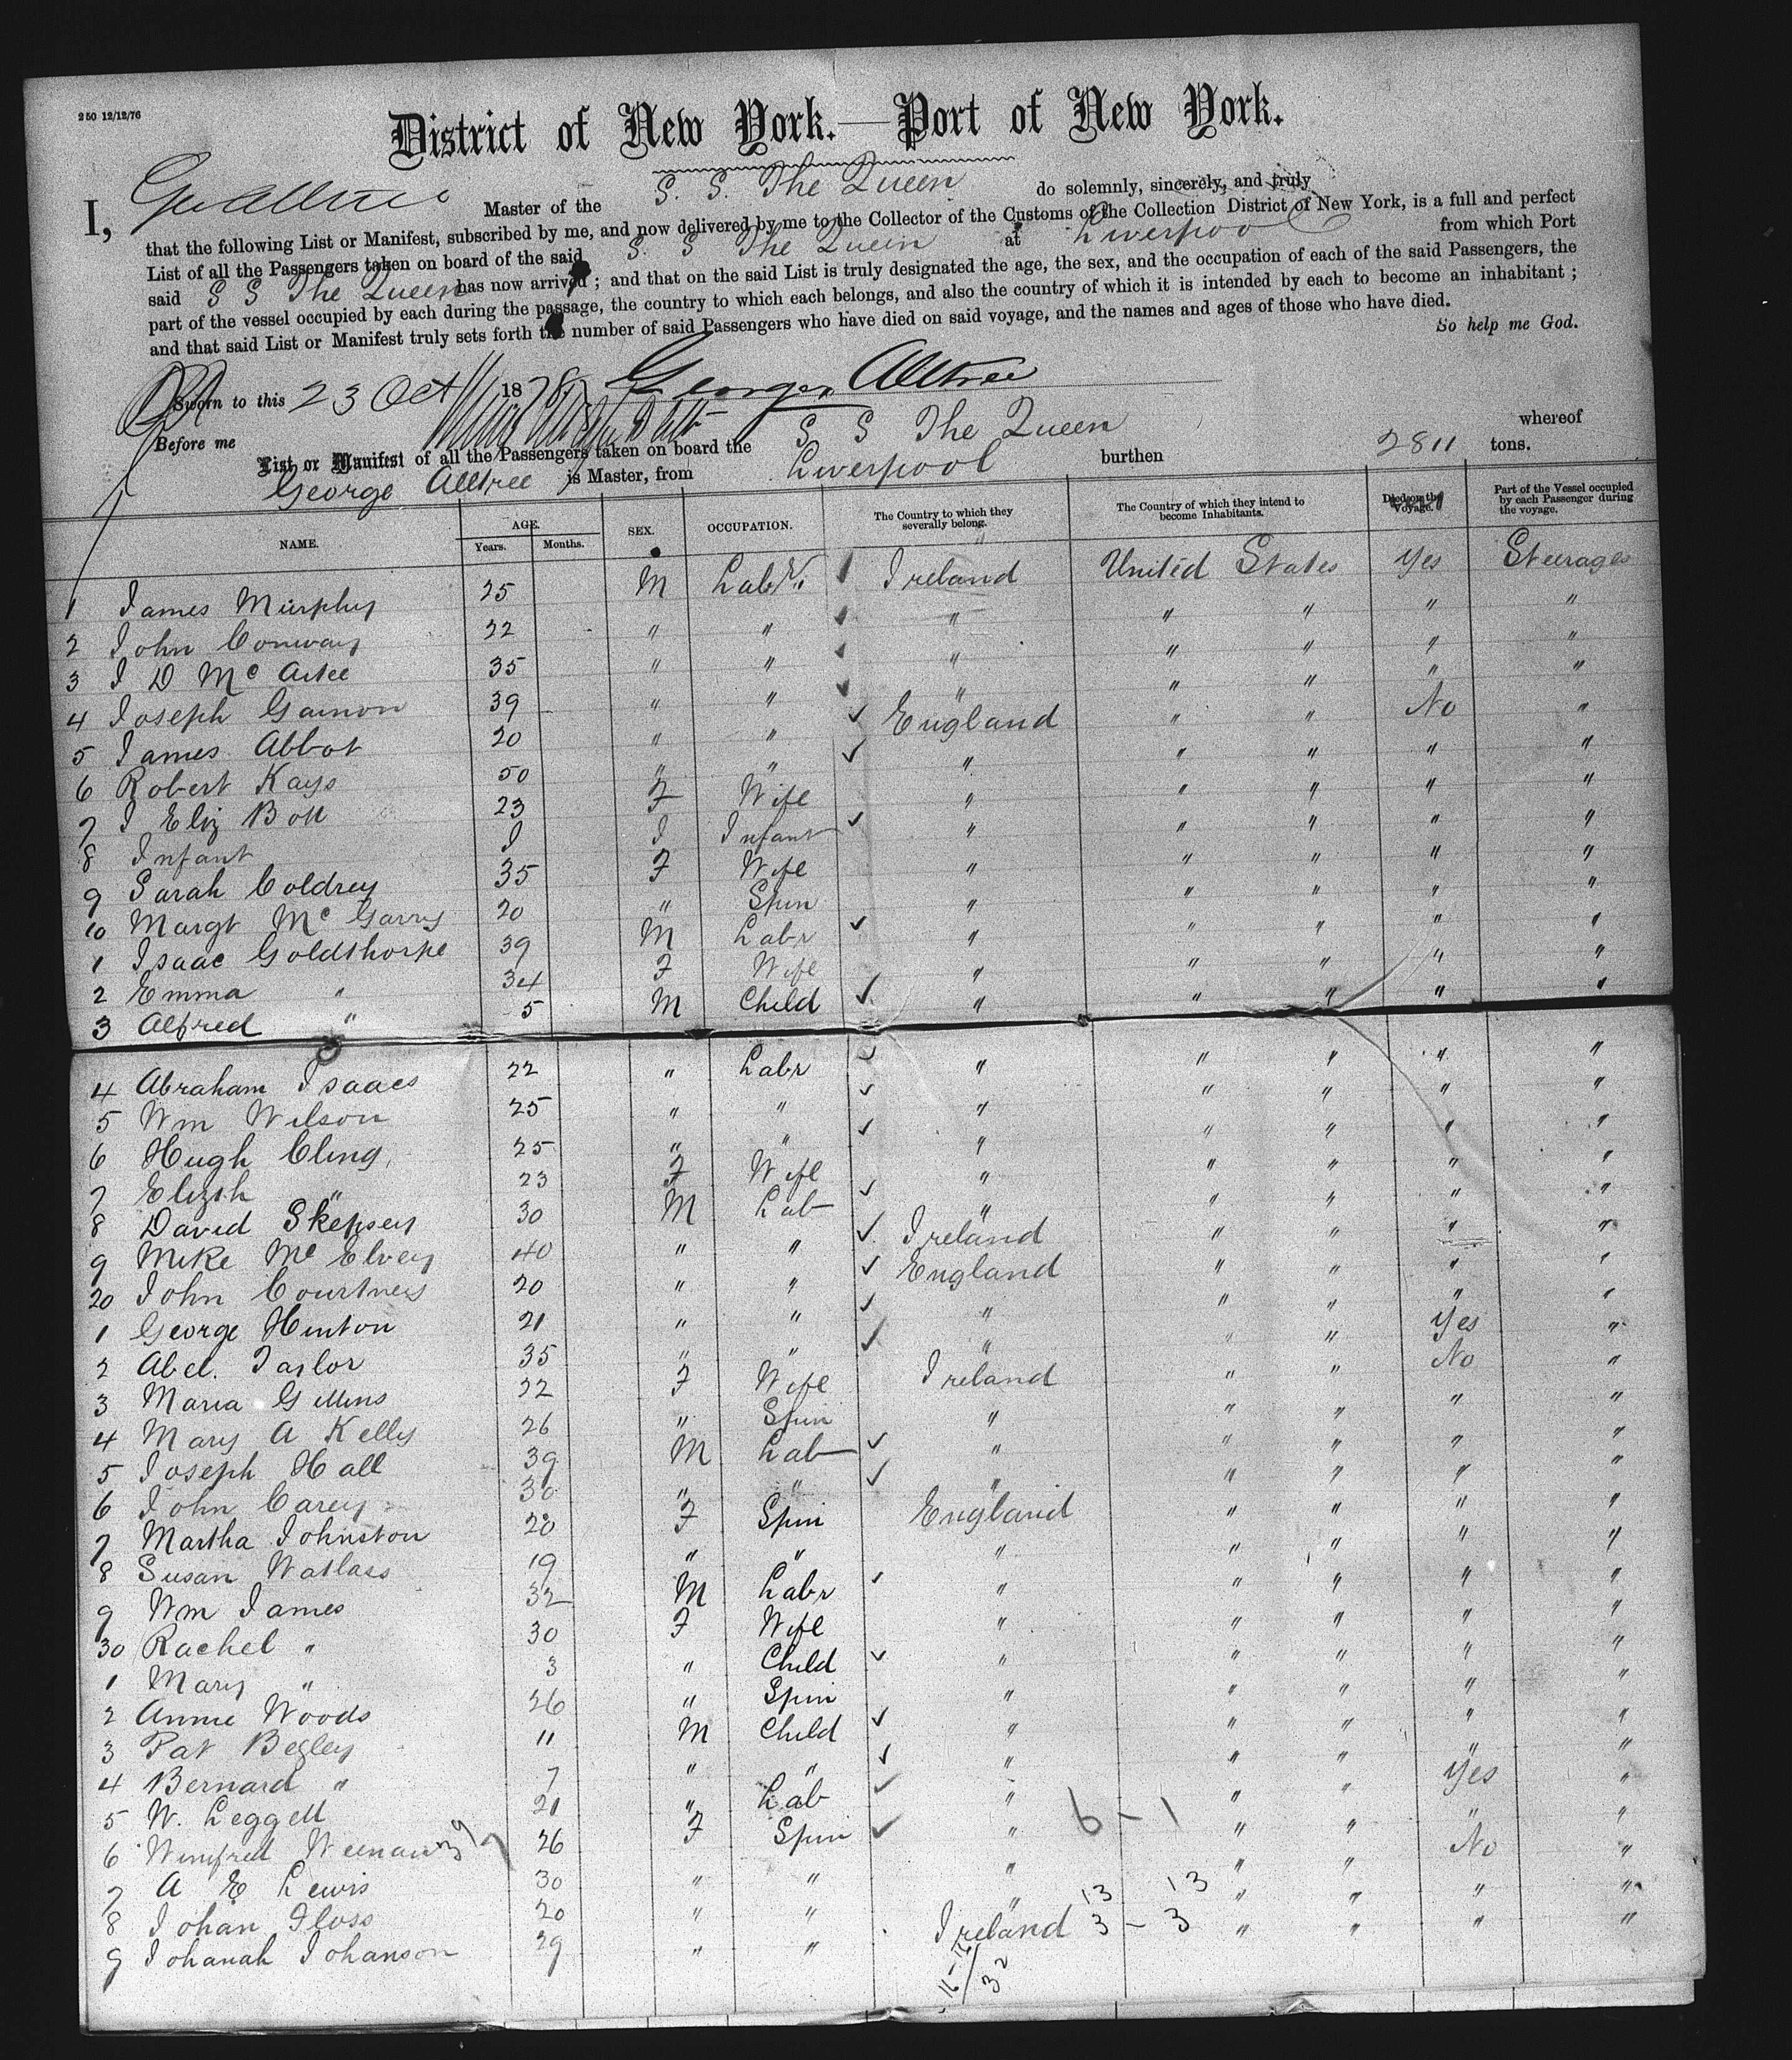 250 12/12/76
District of New York.—Port of New York.
I, Geo Alltree Master of the S. S. The Queen do solemnly, sincerely, and truly
that the following List or Manifest, subscribed by me, and now delivered by me to the Collector of the Customs of the Collection District of New York, is a full and perfect
List of all the Passengers taken on board of the said S. S The Queen at Liverpool from which Port
said S S The Queen has now arrived; and that on the said List is truly designated the age, the sex, and the occupation of each of the said Passengers, the
part of the vessel occupied by each during the passage, the country to which each belongs, and also the country of which it is intended by each to become an inhabitant;
and that said List or Manifest truly sets forth the number of said Passengers who have died on said voyage, and the names and ages of those who have died.
So help me God.
Sworn to this 23 Oct 1878 George Alltree
Before me
List or Manifest of all the Passengers taken on board the S S The Queen whereof
George Alltree is Master, from Liverpool burthen 2811 tons.
NAME. AGE. Years. Months. SEX. OCCUPATION. The Country to which they severally belong. The Country of which they intend to become Inhabitants. Died on the Voyage. Part of the Vessel occupied by each Passenger during the voyage.
1 James Murphy 25 M Labr. Ireland United States Yes Steerage
2 John Conway 22 " " " " " " "
3 J D Mc Artee 35 " " " " " " "
4 Joseph Gamon 39 " " " " " " "
5 James Abbot 20 " " England " " No "
6 Robert Kays 50 " " " " " " "
7 J Eliz Bott 23 F Wife " " " " "
8 Infant I I Infant " " " " "
9 Sarah Coldrey 35 F Wife " " " " "
10 Margt Mc Garry 20 " Spin " " " " "
1 Isaac Goldthorpe 39 M Labr " " " " "
2 Emma " 34 F Wife " " " " "
3 Alfred " 5 M Child " " " " "
4 Abraham Isaacs 22 " Labr " " " " "
5 Wm Wilson 25 " " " " " " "
6 Hugh Cling 25 " " " " " " "
7 Elizth " 23 F Wife " " " " "
8 David Skepsey 30 M Lab " " " " "
9 Mike Mc Elvey 40 " " Ireland " " " "
20 John Courtney 20 " " England " " " "
1 George Hinton 21 " " " " " " "
2 Abel Taylor 35 " " " " " Yes "
3 Maria Gillins 22 F Wife Ireland " " No "
4 Mary A Kelly 26 " Spin " " " " "
5 Joseph Hall 39 M Lab " " " " "
6 John Carey 30 " " " " " " "
7 Martha Johnston 20 F Spin England " " " "
8 Susan Watlass 19 " " " " " " "
9 Wm James 32 M Labr " " " " "
30 Rachel " 30 F Wife " " " " "
1 Mary " 3 " Child " " " " "
2 Annie Woods 26 " Spin " " " " "
3 Pat Begley 11 M Child " " " " "
4 Bernard " 7 " " " " " " "
5 W. Leggett 21 " Lab " " " Yes "
6 Winifred 26 F Spin " 6-1 " " " "
7 A E Lewis 30 " " " " " No "
8 Johan Gloss 20 " " " 13 13 " " " "
9 Johanah Johanson 29 " " Ireland 3 - 3 " " " "
16-16/32